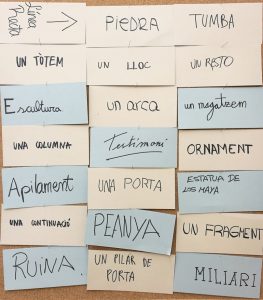 Línea
Recta
PIEDRA
TUMBA
UN TÒTEM
UN LLOC
UN RESTO
Escultura
un arca
un magatzem
UNA COLUMNA
Testimoni
ORNAMENT
Apilament
UNA PORTA
ESTATUA DE
LOS MAYA
UNA CONTINUACIÓ
PEANYA
UN FRAGMENT
RUINA.
UN PILAR DE
PORTA
MILIARI